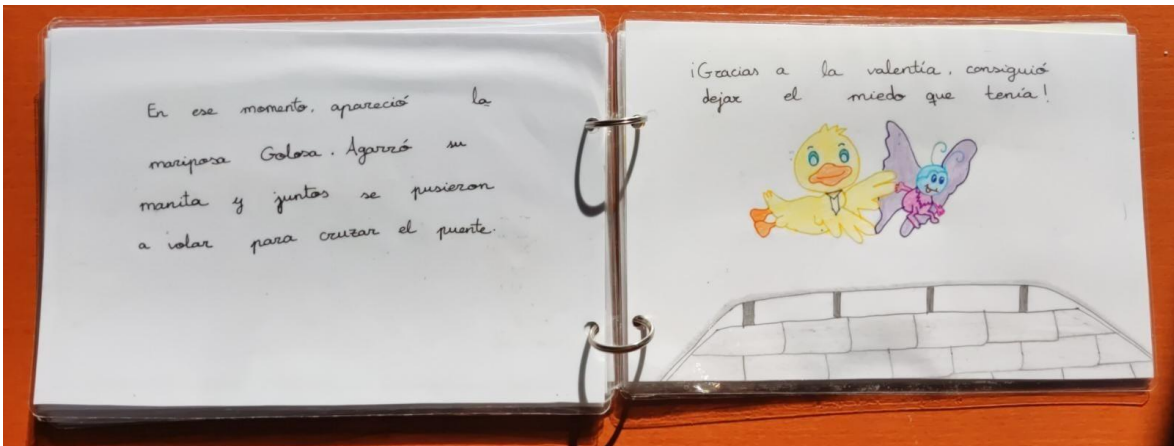 En ese momento, apareció la
mariposa Golosa. Agarró su
manita y juntos se pusieron
a volar para cruzar el puente.
¡Gracias a la valentía, consiguió
dejar el miedo que tenía!